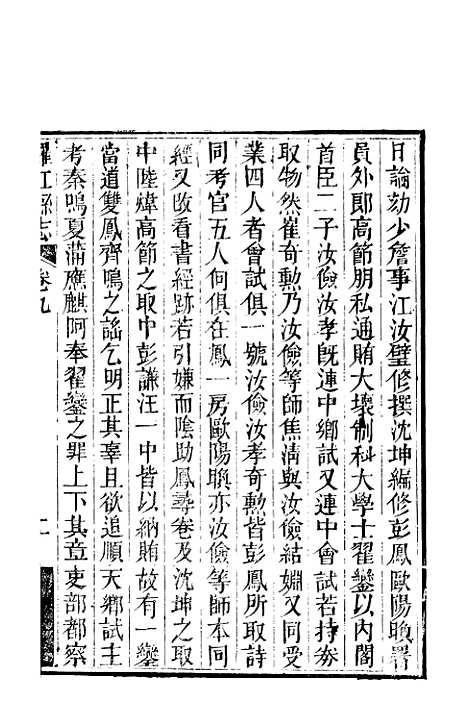 日論劾少詹事江汝璧修撰沈坤編修彭鳳歐陽㬇署
員外郎高節朋私通賄大壞制科大學士翟鑾以內閣
首臣二子汝儉汝孝旣連中鄉試又連中會試若持劵
取物然崔奇勲乃汝儉等師焦清與汝儉結婣又同受
業四人者會試俱一號汝儉汝孝奇勲皆彭鳳所取詩
同考官五人何俱在鳳一房歐陽㬇亦汝儉等師本同
經又改看書經跡若引嫌而陰助鳳尋卷及沈坤之取
中陸煒高節之取中彭謙汪一中皆以納賄故有一鑾
當道雙鳳齊鳴之謠乞明正其辜且欲追順天鄉試主
考秦鳴夏浦應麒阿奉翟鑾之罪上下其章吏部都察
羅江縣志 卷九 二